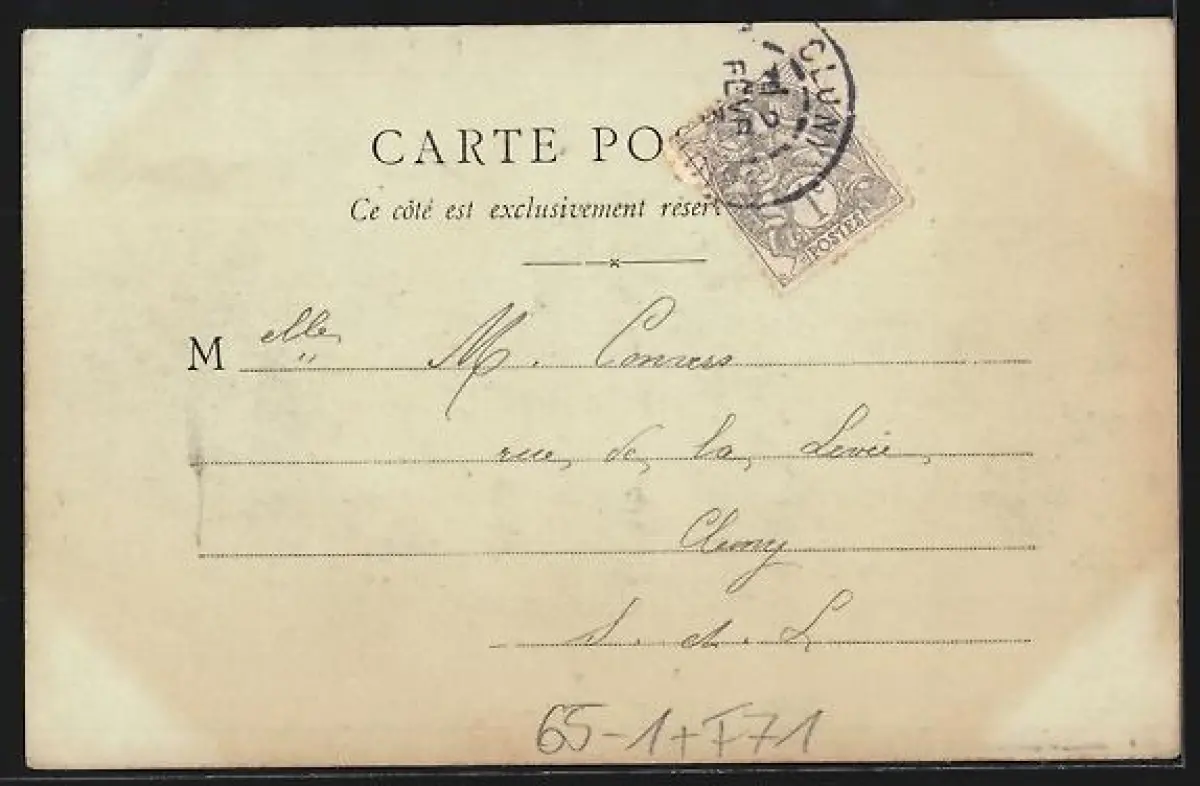 CARTE PO
Ce côté est exclusivement réserv
CLUNY
2
FEVR
1
POSTES
M elle M. Conress
rue de la Levée
Cluny
S. et. L
65-1+F71